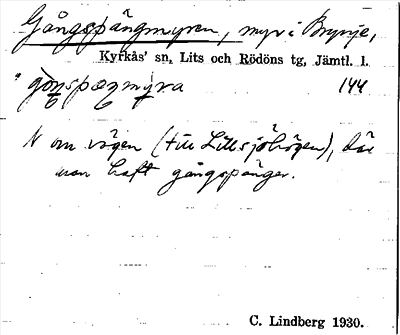 Gångspångmyren, myr i Brynje,
Kyrkås' sn, Lits och Rödöns tg, Jämtl. l.
144
N om vägen (till Lillsjöhögen), där
man haft gångspånger.
C. Lindberg 1930.